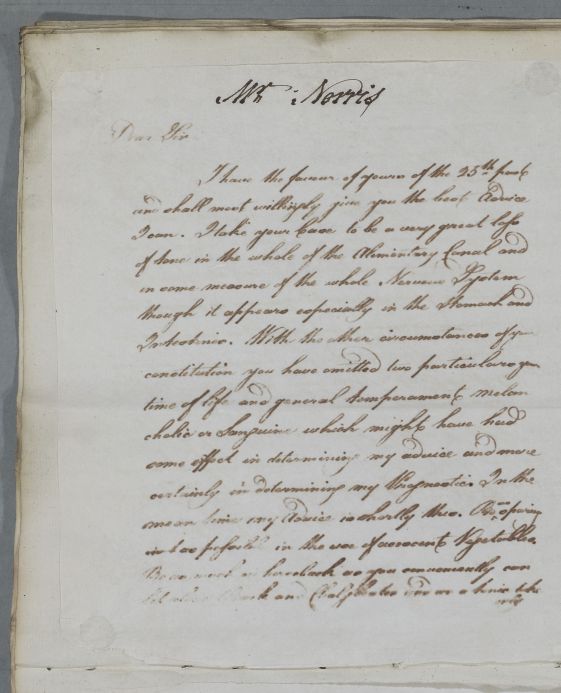 Mr. Norris
Dear Sir
I have the favour of yours of the 25th past
and shall most willingly give you the best Advice
I can. I take your Case to be a very great loss
of tone in the whole of the Alimentary Canal and
in some measure of the whole Nervous System
though it appears especially in the Stomach and
Intestines. With the other circumstances of yr
constitution you have omitted two particulars yr
time of life and general temperament melan
cholic or Sanguine which might have had
some effect in determining my advice and more
certainly in determining my Prognostic. In the
mean time my Advice is shortly this. Be as sparing
as possible in the use of acescent Vegetables.
Be as much on horseback as you conveniently can
Bark and Chalybeates for a time